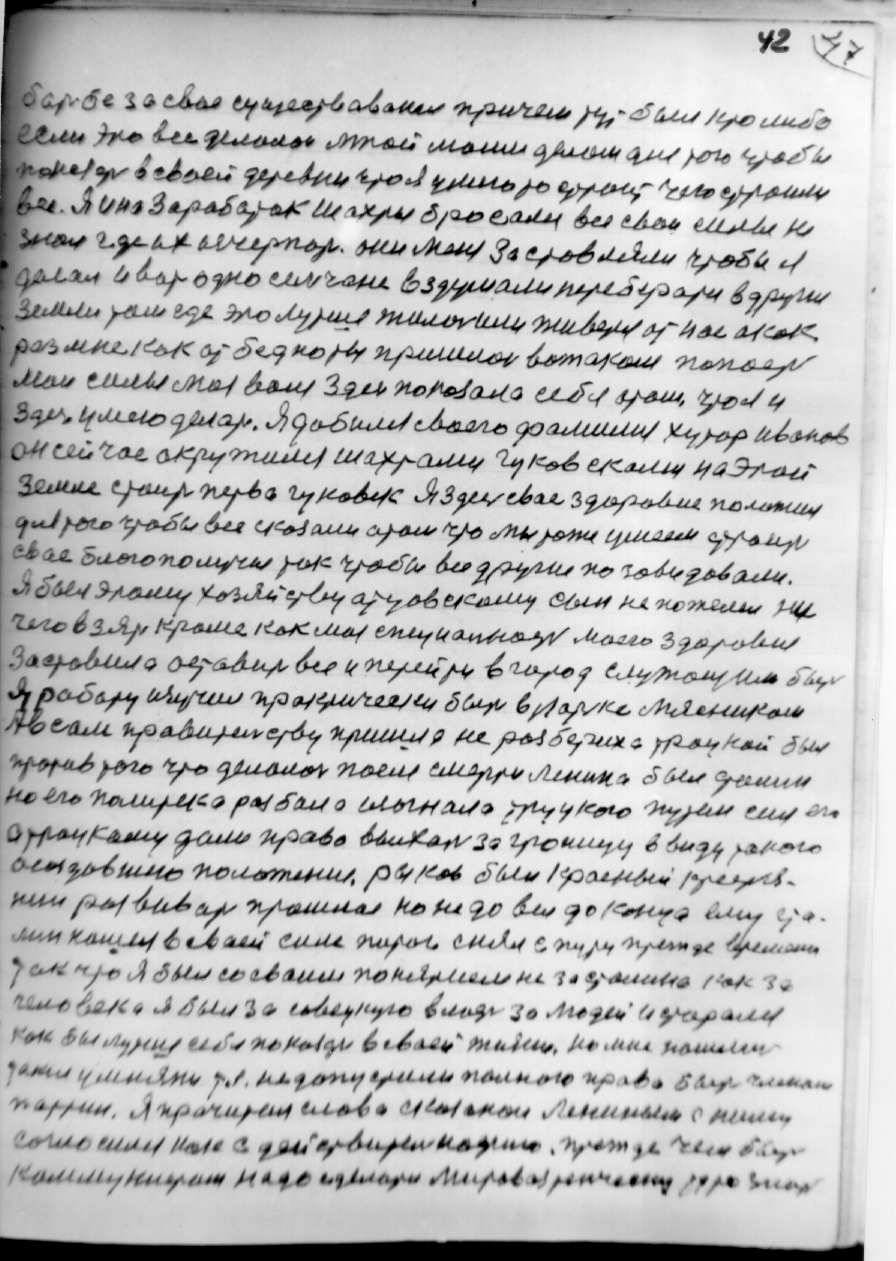 42 47
барбе за свое существавания причем тут были кто либо
если это все делалос мной моим делам для того чтобы
показат в своей деревни что я умею то строит чего строили
все. Я и на Заработок Шахты бросали все свои силы не
зная где их исчерпат. они меня Заставляли чтобы я
делал и вот односелчане вздумали перебератся в другие
Земли там где это лутше жилос или живется от нас а как
раз мне как от бедноты пришлос в таком
мои силы моя воля Здес показала себя в том, что я и
Здес умею делат. Я добился своего фамилия хутор иванов
он сейчас окружился шахтами гуковскими на Этой
Земле стоит перва гуковск Я Здес свое здоровие положил
для того чтобы все сказали о том что мы тоже умеем строит
свое благополучия так чтобы все другие по завидовали.
Я был этому хозяйству отцовскому сын не пожелал ни
чего взят кроме как моя специалност моего здоровия
Заставила оставит все и перейти в город служащим быт
Я работу изучил практически быт в ларке мясником
правителству пришла не разбериха троцкий был
против того что делалос после смерти Ленина был сталин
но его политека разбала изгнала троцкого путем сил его
а троцкаму дали право выехат за границу в виду такого
создавшего положения. рыков был красный крестя-
нин развиват прошлое но не до вел до конца ему ста-
лин нашел в своей силе порог снял с пути прежде времени
так что Я был со своим понятием не за сталина как за
человека я был за совецкую власт за людей и старался
как бы лутше себя показат в своей жизни. но мне
не допустили полного права быт членам
партии. Я прочитал слова сказаной Лениным с ними
согласился как с действителностю. прежде чем быт
коммунистом надо сделат знат